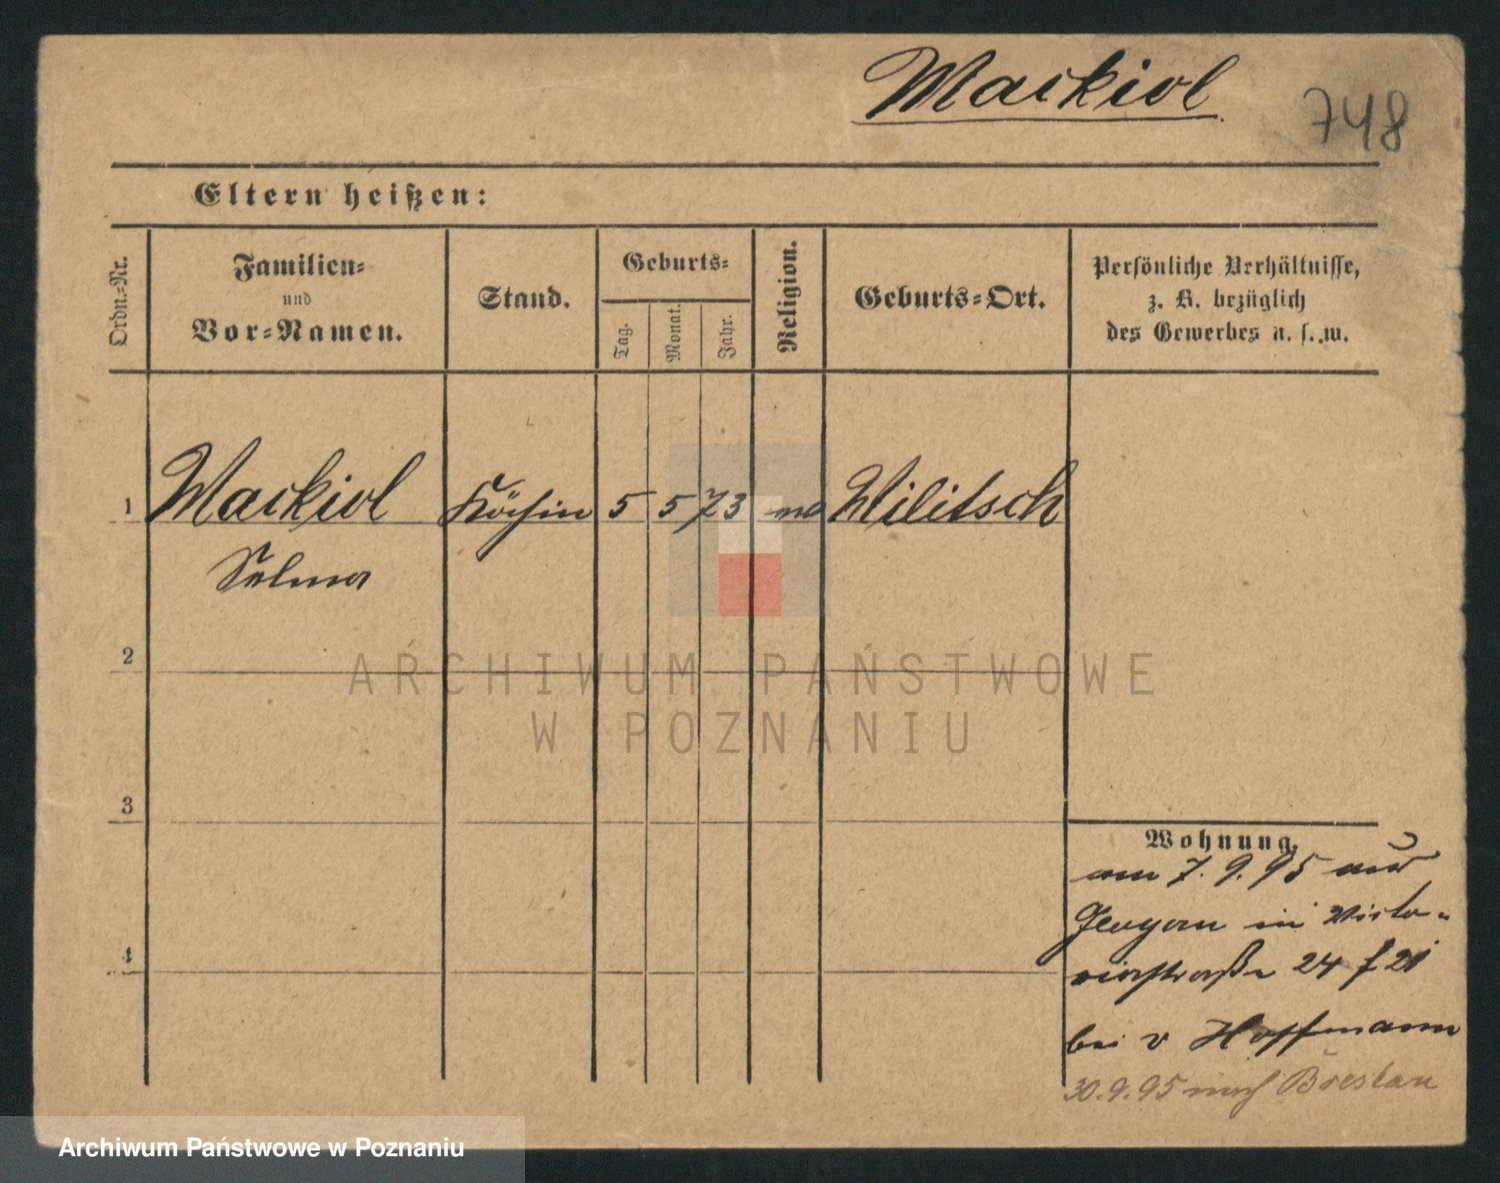 Mackiol
748
Eltern heißen:
Ordn.=Nr.
Familien=
und
Vor=Namen.
Stand.
Geburts=
Tag.
Monat.
Jahr.
Religion.
Geburts=Ort.
Persönliche Verhältnisse,
z. B. bezüglich
des Gewerbes u. s. w.
1 Mackiol Köchin 5 5 73 Militsch
Selma
2
ARCHIWUM PAŃSTWOWE
W POZNANIU
3
4
Wohnung.
am 7. 9. 95 aus
Glogau in Victo-
riastraße 24 f 21
bei v Hoffmann
30.9.95 nach Breslau
Archiwum Państwowe w Poznaniu